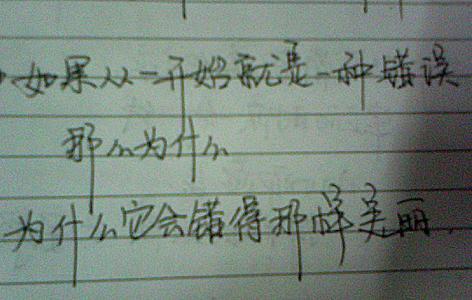 如果从一开始就是一种错误
那么为什么
为什么它会错得那样美丽.